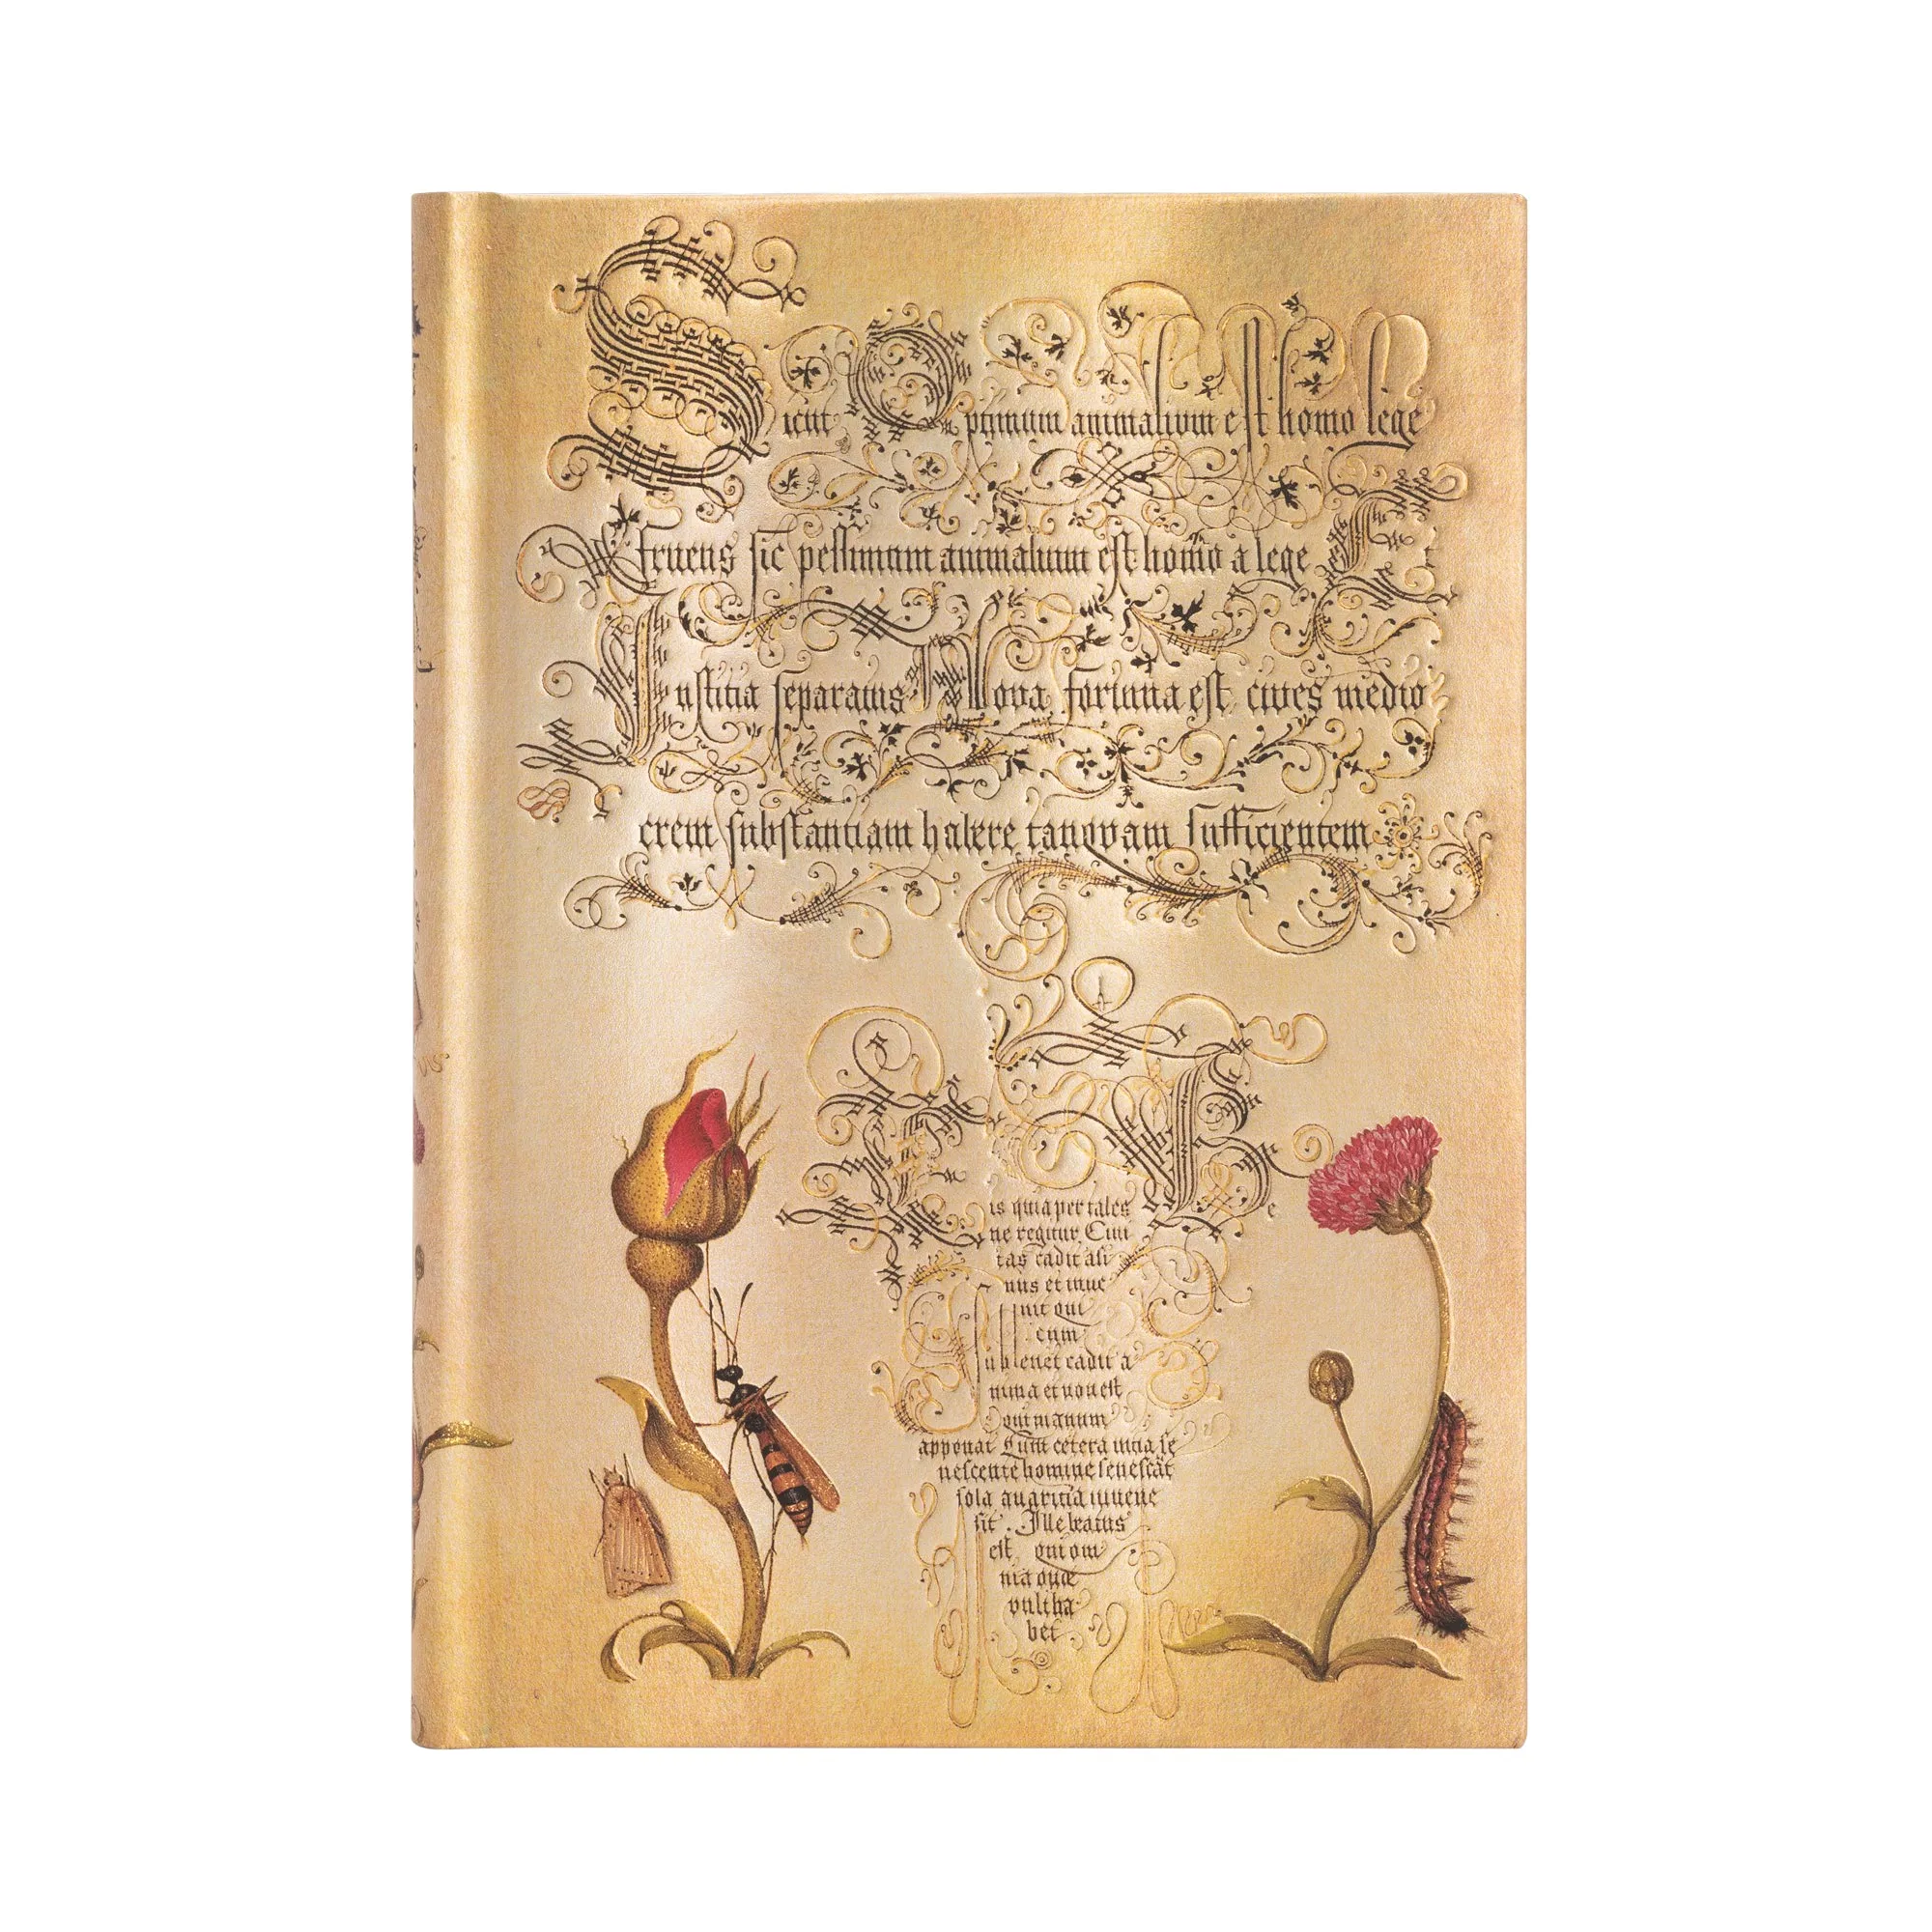 Sicut Optimum animalium est homo lege
fruens sic pessimum animalium est homo a lege Et
Iustitia separatus Nova fortuna est cives medio
crem substantiam habere tanquam sufficientem
His quia per tales Be
ne regitur. Civi
tas cadit asi
nus et inve
nit qui
cum
sublevet cadit a
nima et non est
qui manum
apponat Cum cetera vitia se
nescente homine senescāt
sola avaritia iuvene
sit. Ille beatus
est qui om
nia quæ
vult ha
bet